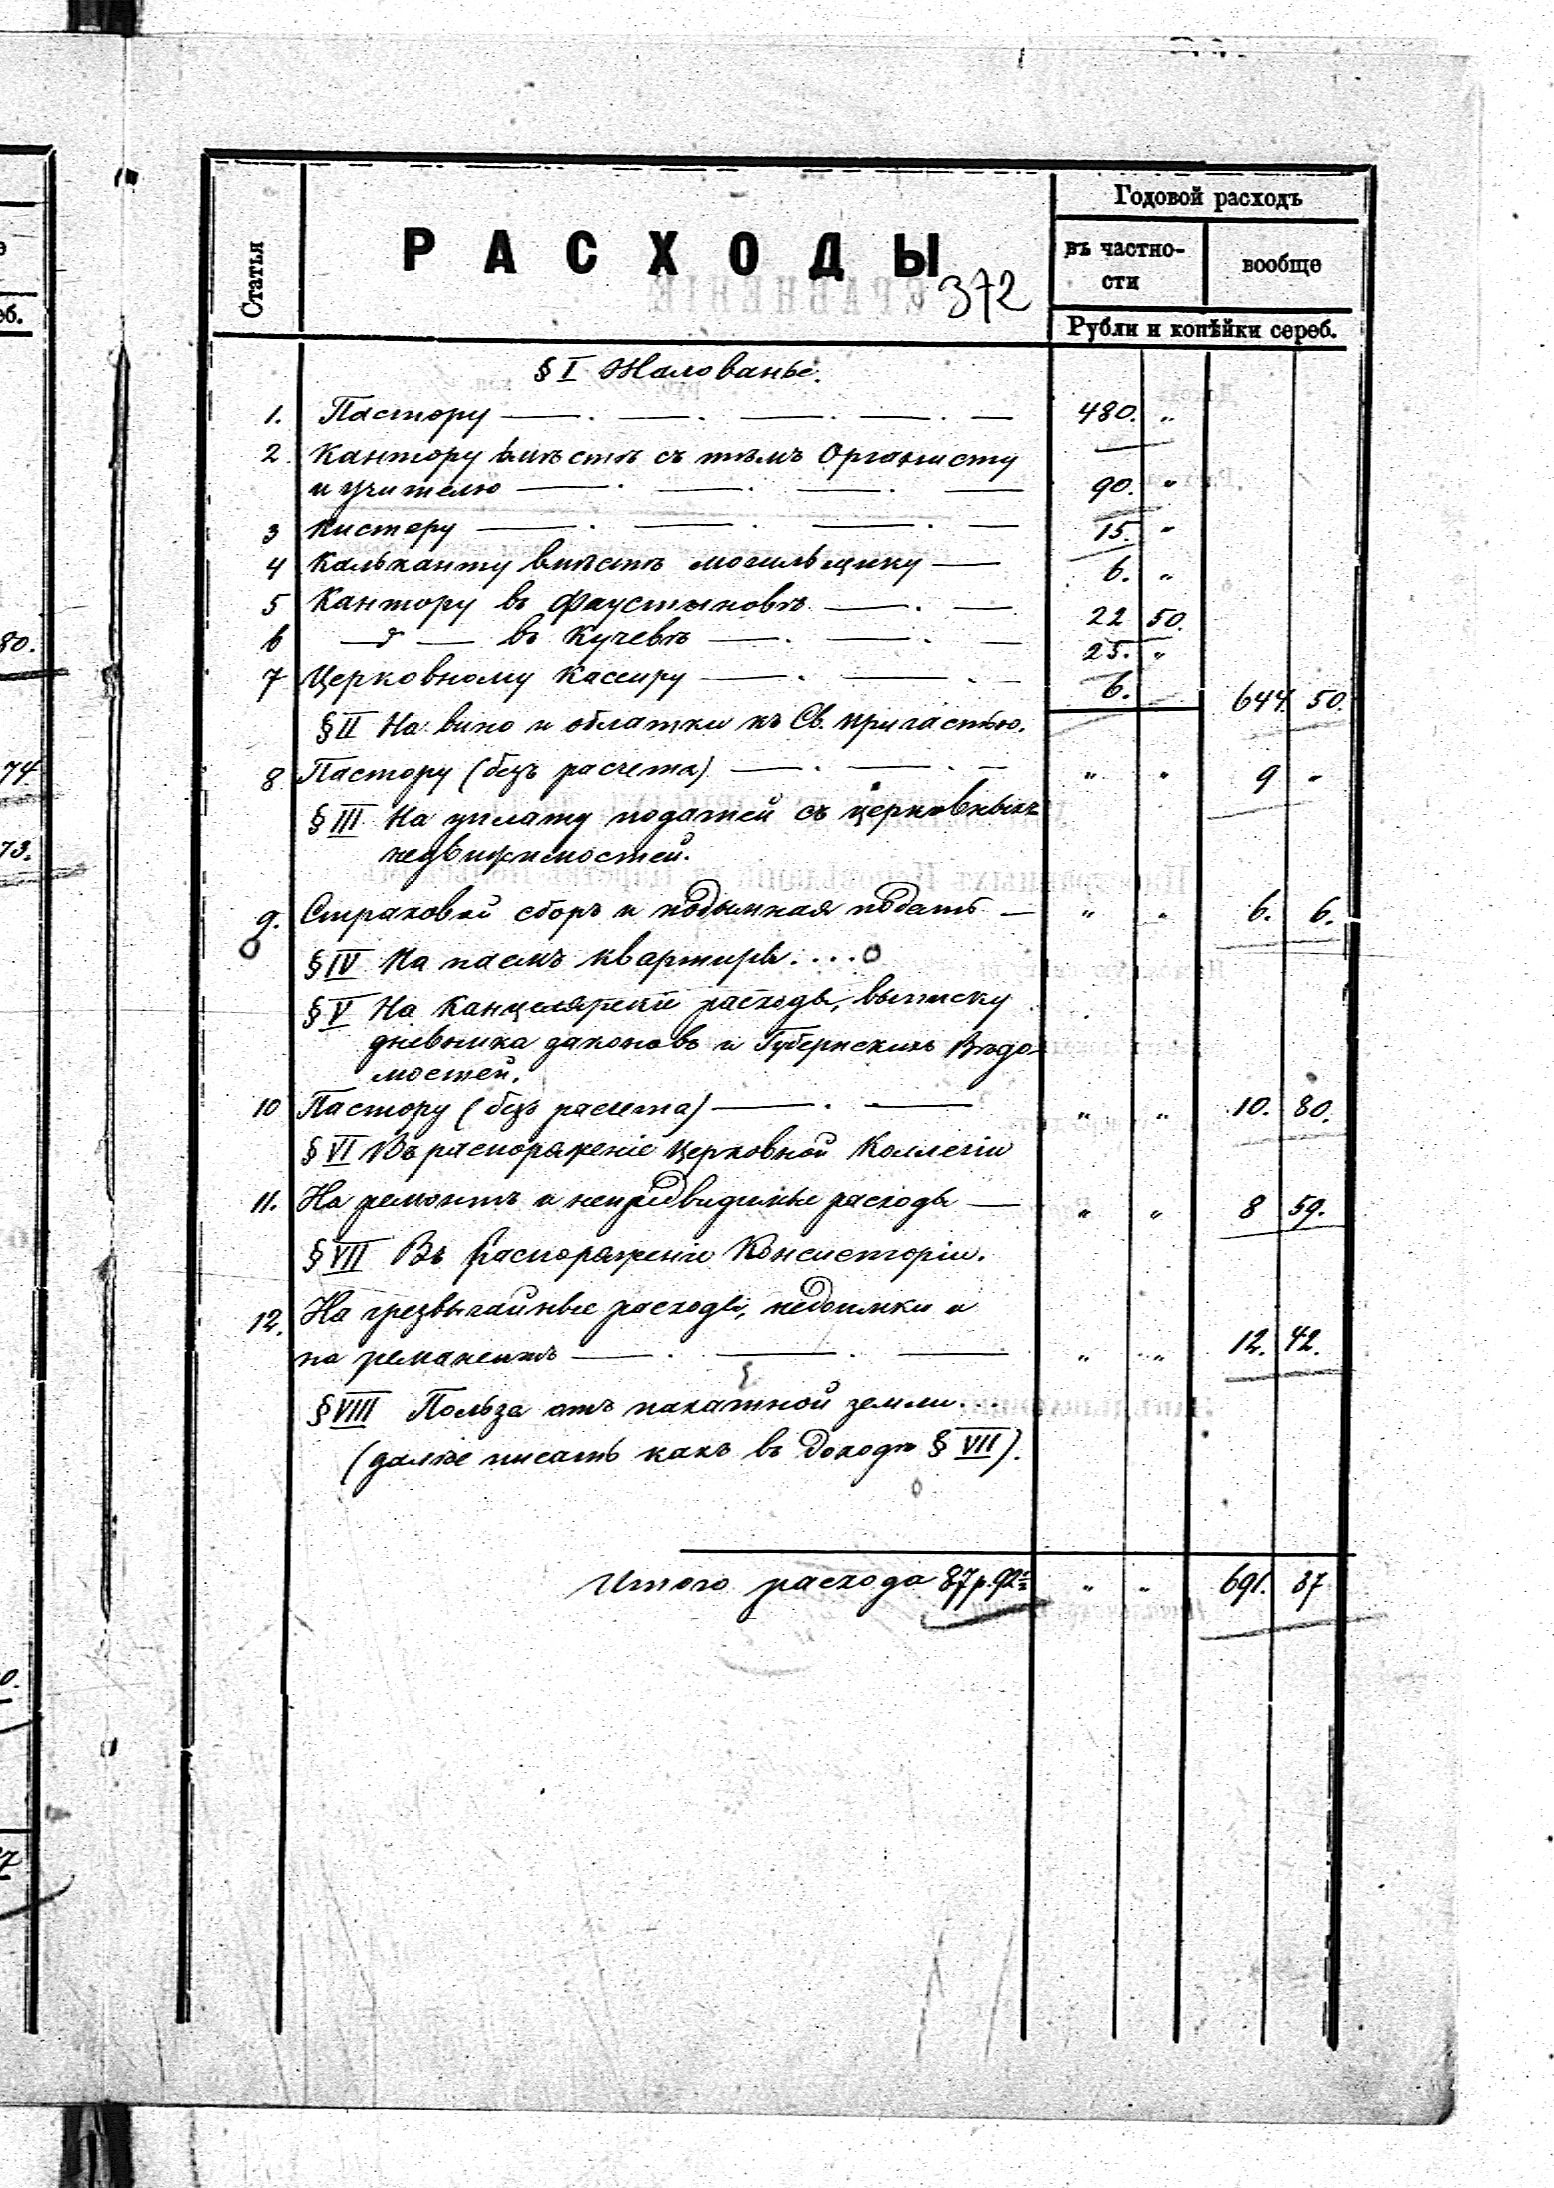 Статья
РАСХОДЫ
372
Годовой расходъ
въ частно-
сти
вообще
Рубли и копѣйки сереб.
§ I Жалованье.
1. Пастору — . — . — . — . — 480. "
2. Кантору вмѣстѣ съ тѣмъ Органисту
и учителю — . — . — . — 90. "
3 Кистеру — . — . — . — 15. "
4 Кальканту вмѣстѣ могильщику — 6. "
5 Кантору въ Фаустыновѣ — . — 22 50.
6 — d — въ Кучевѣ — . — . — 25. "
7 Церковному кассиру — . — . — 6. 644. 50.
§ II На вино и облатки къ Св. причастію.
8 Пастору (безъ расчета) — . — . — " " 9 "
§ III На уплату податей съ церковныхъ
недвижимостей.
9. Страховой сборъ и подымная подать — " " 6. 6.
§ IV На наемъ квартиры. . . . 0
§ V На Канцелярскіе расходы, выписку
дневника законовъ и Губернскихъ Вѣдо-
мостей.
10 Пастору (безъ расчета) — . — " " 10. 80.
§ VI Въ распоряженіе Церковной Коллегіи
11. На ремонтъ и непредвидимые расходы — " " 8 59.
§ VII Въ распоряженіи Консисторіи.
12. На чрезвычайные расходы, недоимки и
на ремонентъ — . — . — " " 12. 42.
§ VIII Польза отъ пахатной земли . . .
(далѣе писать какъ въ Доходѣ § VII).
Итого расхода 87 р. 92 " " 691. 37
80.
74
73.